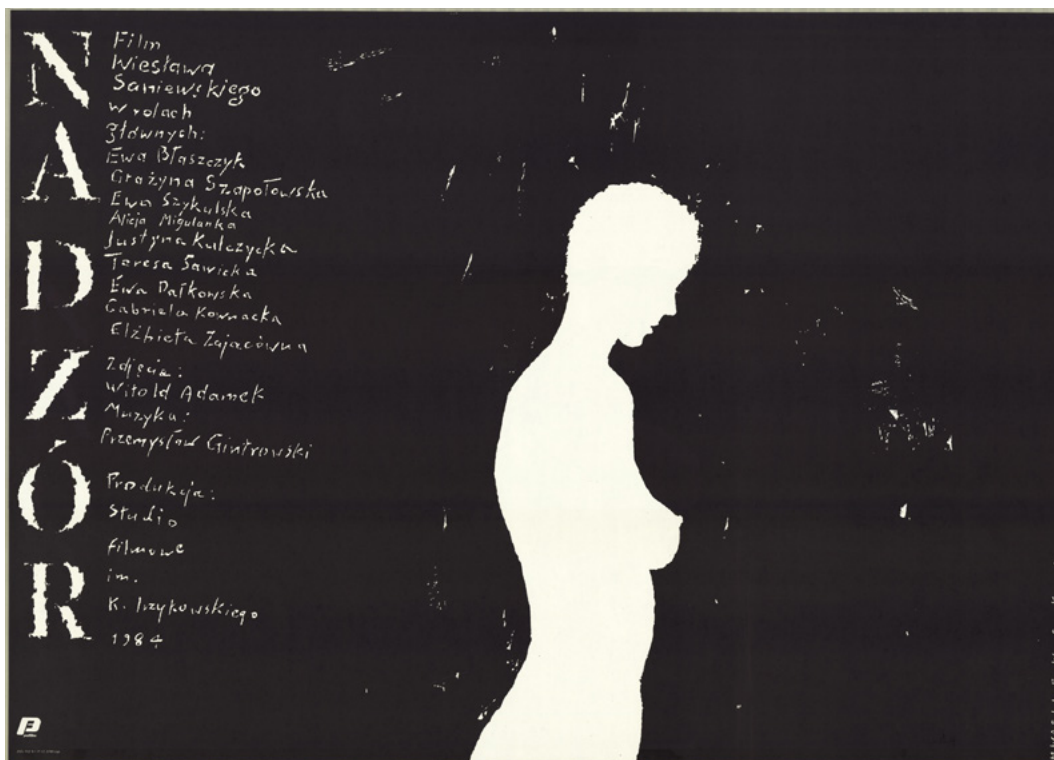 NADZÓR
Film
Wiesława
Saniewskiego
w rolach
głównych:
Ewa Błaszczyk
Grażyna Szapołowska
Ewa Szykulska
Alicja Migulanka
Justyna Kulczycka
Teresa Sawicka
Ewa Dałkowska
Gabriela Kownacka
Elżbieta Zającówna
Zdjęcia:
Witold Adamek
Muzyka:
Przemysław Gintrowski
Produkcja:
Studio
filmowe
im.
K. Irzykowskiego
1984